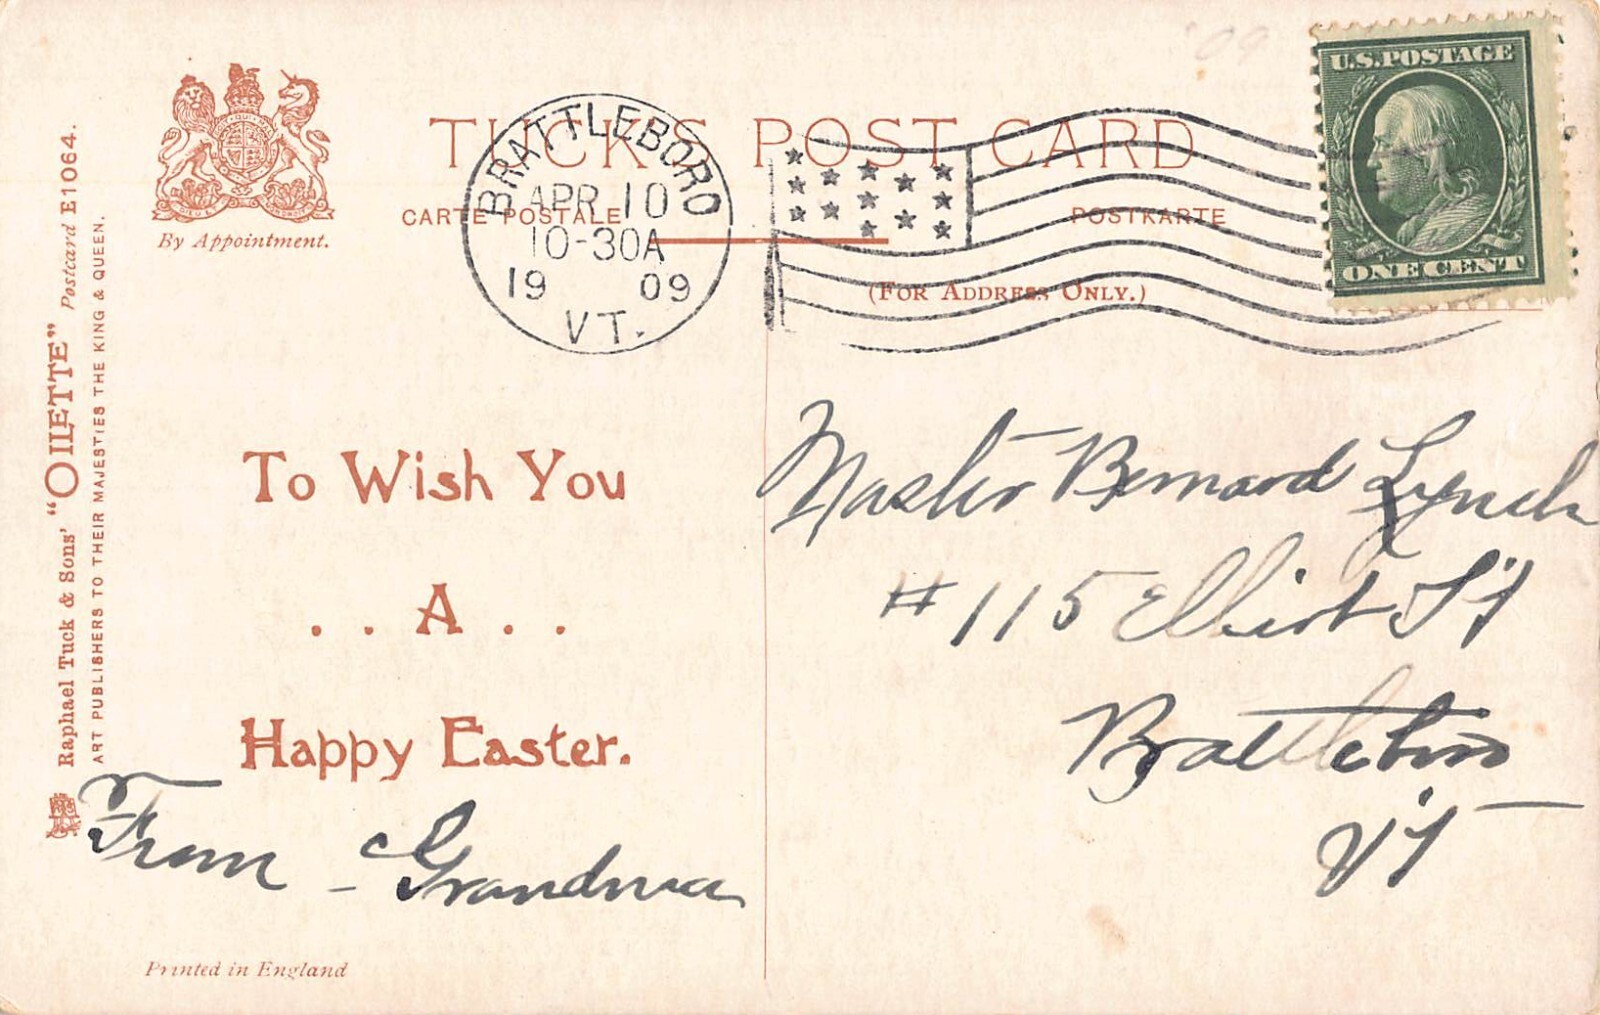 '09
U.S.POSTAGE
ONE CENT
TUCK'S POST CARD
CARTE POSTALE
POSTKARTE
(FOR ADDRESS ONLY.)
BRATTLEBORO
APR 10
10-30A
1909
VT.
By Appointment.
Raphael Tuck & Sons' "OILETTE" Postcard E1064.
ART PUBLISHERS TO THEIR MAJESTIES THE KING & QUEEN.
To Wish You
. . A . .
Happy Easter.
From - Grandma
Printed in England
Master Bernard Lynch
#115 Elliot St
Brattleboro
Vt